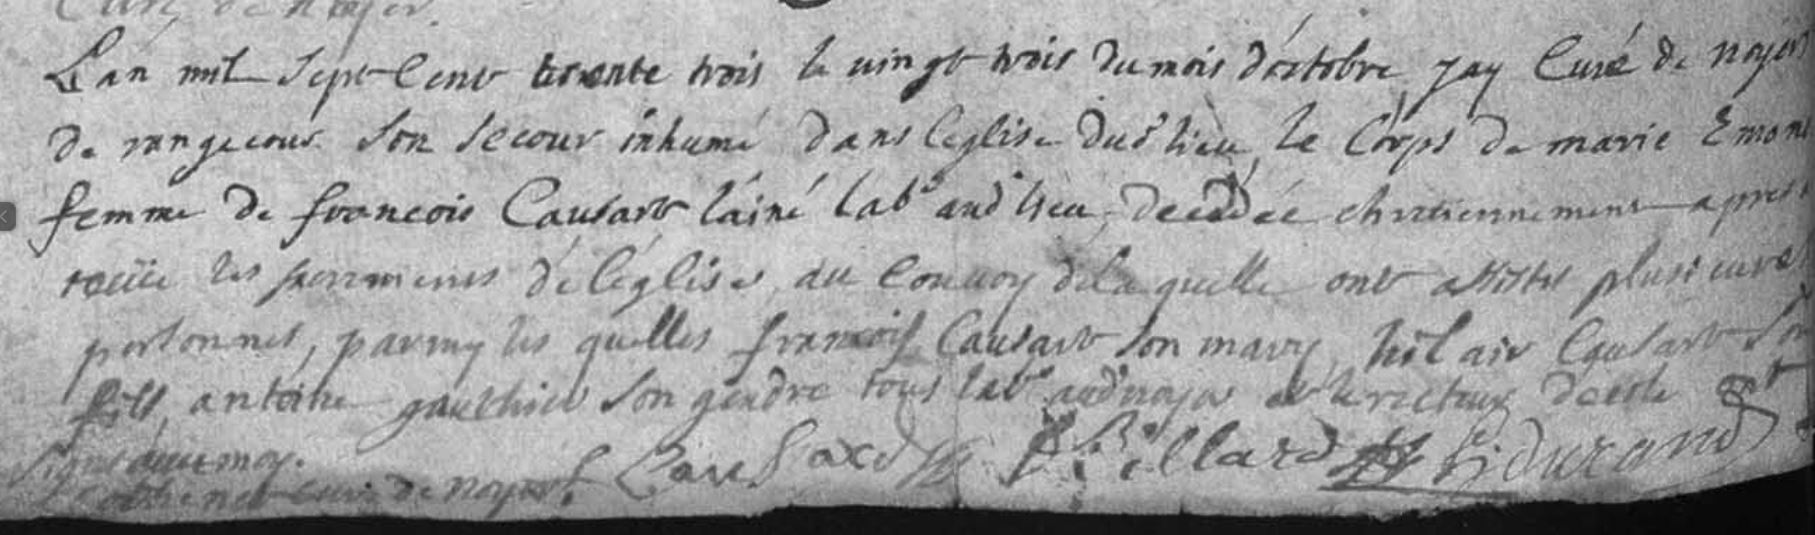 Curé de noyer.
Lan mil Sept Cent trente trois le vingt trois du mois d'octobre jay Curé de noyers
de rangecour son secour inhumé dans leglise dud lieu, le Corps de marie Emon
femme de francois Causart lainé lab.r aud lieu, decedée chretiennement apres
receüe les sacrements de l'église, au Convoy de la quelle ont assisté plusieurs
personnes, parmy les quelles francois Causart son mary, hilair Causart son
fils, antoine gauthier son gendre tous lab.rs aud noyer et le recteur decole qui ont
signé avec moy.
curé de noyers Causard Billard durand